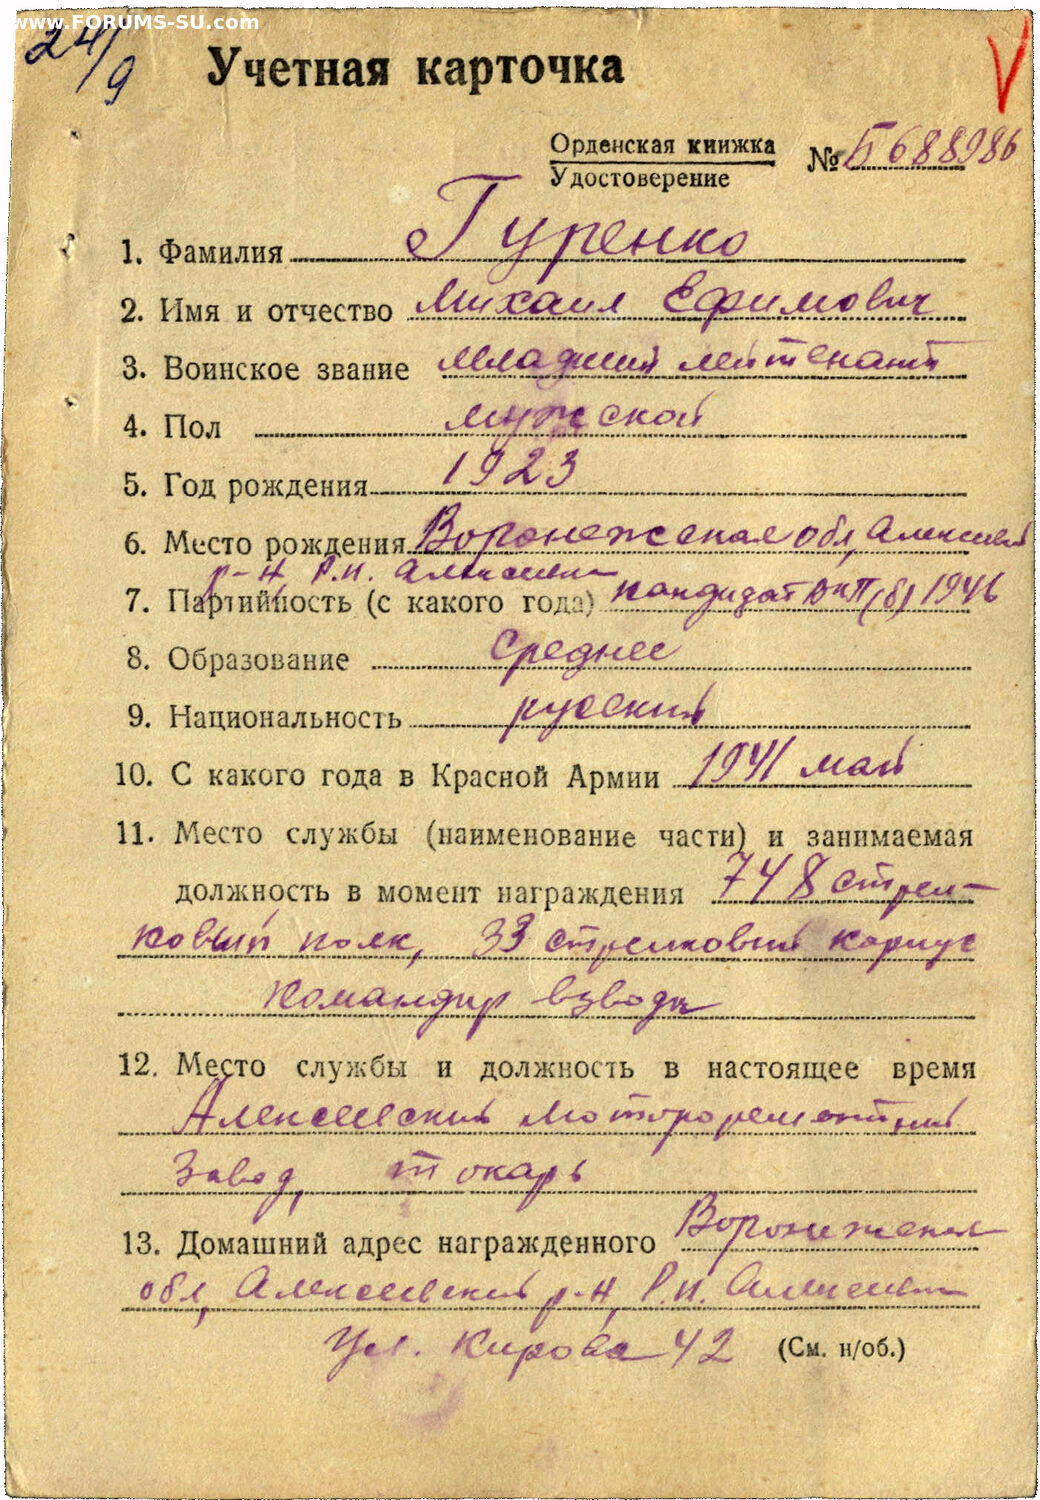 www.FORUMS-SU.com
24/9
Учетная карточка
Орденская книжка
Удостоверение
№ Б 688986
1. Фамилия Гуренко
2. Имя и отчество Михаил Ефимович
3. Воинское звание младший лейтенант
4. Пол мужской
5. Год рождения 1923
6. Место рождения Воронежская обл, Алексеев
р-н, Р.п. Алексеевка
7. Партийность (с какого года) кандидат ВКП(б) 1946
8. Образование Среднее
9. Национальность русский
10. С какого года в Красной Армии 1941 май
11. Место службы (наименование части) и занимаемая
должность в момент награждения 748 стрел-
ковый полк, 33 стрелковый корпус
командир взвода
12. Место службы и должность в настоящее время
Алексеевский мотороремонтный
завод, токарь
13. Домашний адрес награжденного Воронежская
обл, Алексеевский р-н, Р.п. Алексеевка
ул. Кирова 42 (См. н/об.)